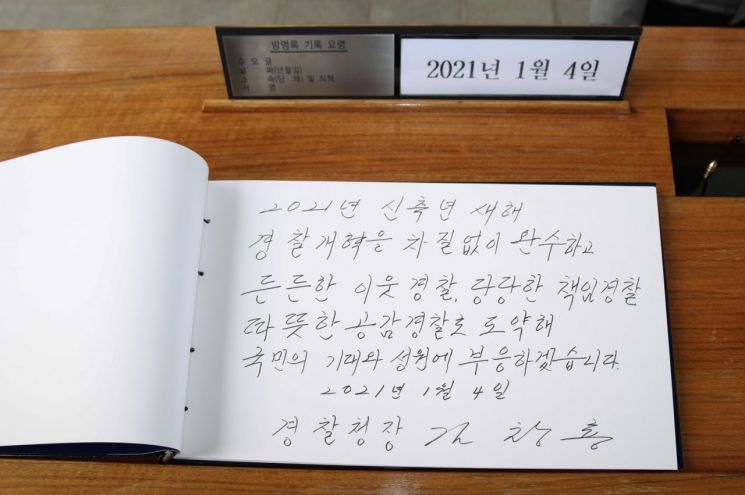 방명록 기록 요령
추 모 글
날 짜(년월일)
소 속(단 체) 및 직책
서 명
2021년 1월 4일
2021년 신축년 새해
경찰개혁을 차질없이 완수하고
든든한 이웃경찰, 당당한 책임경찰
따뜻한 공감경찰로 도약해
국민의 기대와 성원에 부응하겠습니다.
2021년 1월 4일
경찰청장 김 창 룡